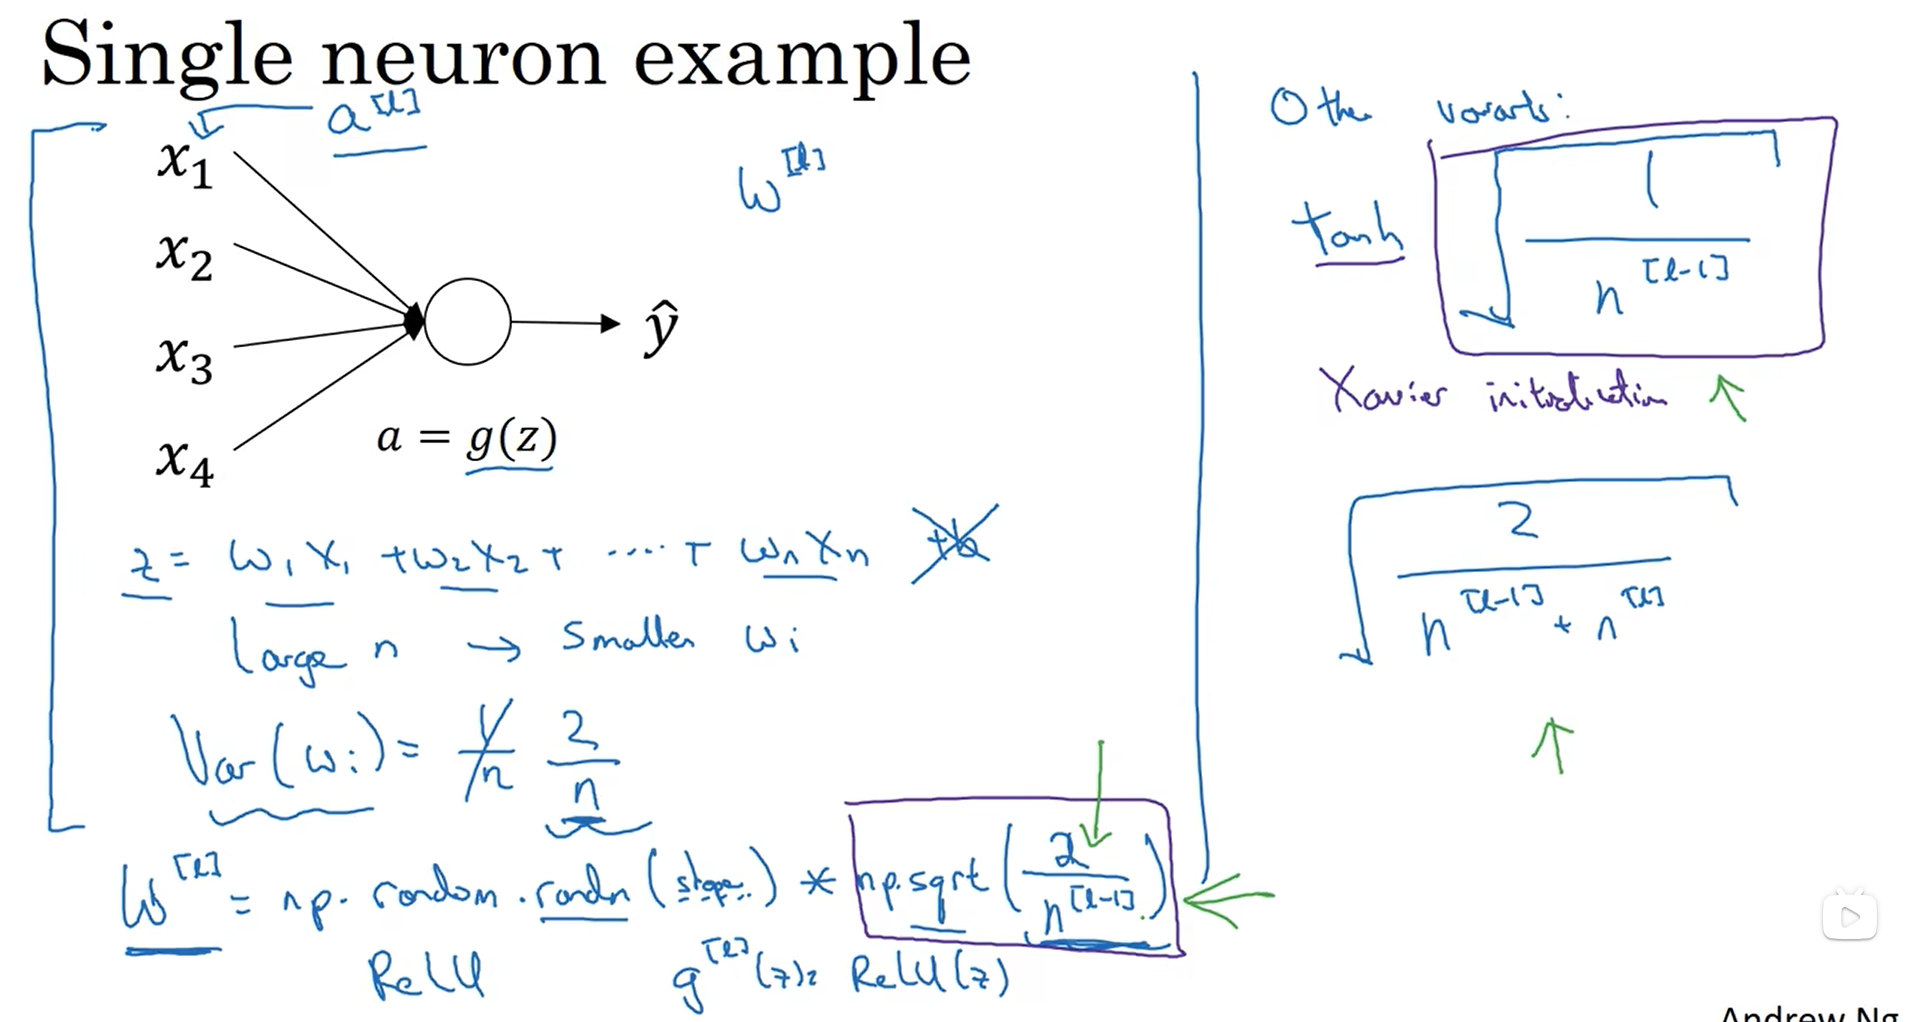 Single neuron example
a^[l]
x₁
x₂
x₃
x₄
ŷ
a = g(z)
W^[l]
z = w₁x₁ + w₂x₂ + ..... + wₙxₙ +b
Large n → Smaller wᵢ
Var(wᵢ) = 1/n 2/n
W^[l] = np.random.randn(shape) * np.sqrt(2/n^[l-1])
ReLU g^[l](z) = ReLU(z)
Other variants:
Tanh √(1/n^[l-1])
Xavier initialization
√(2/(n^[l-1] + n^[l]))
Andrew Ng